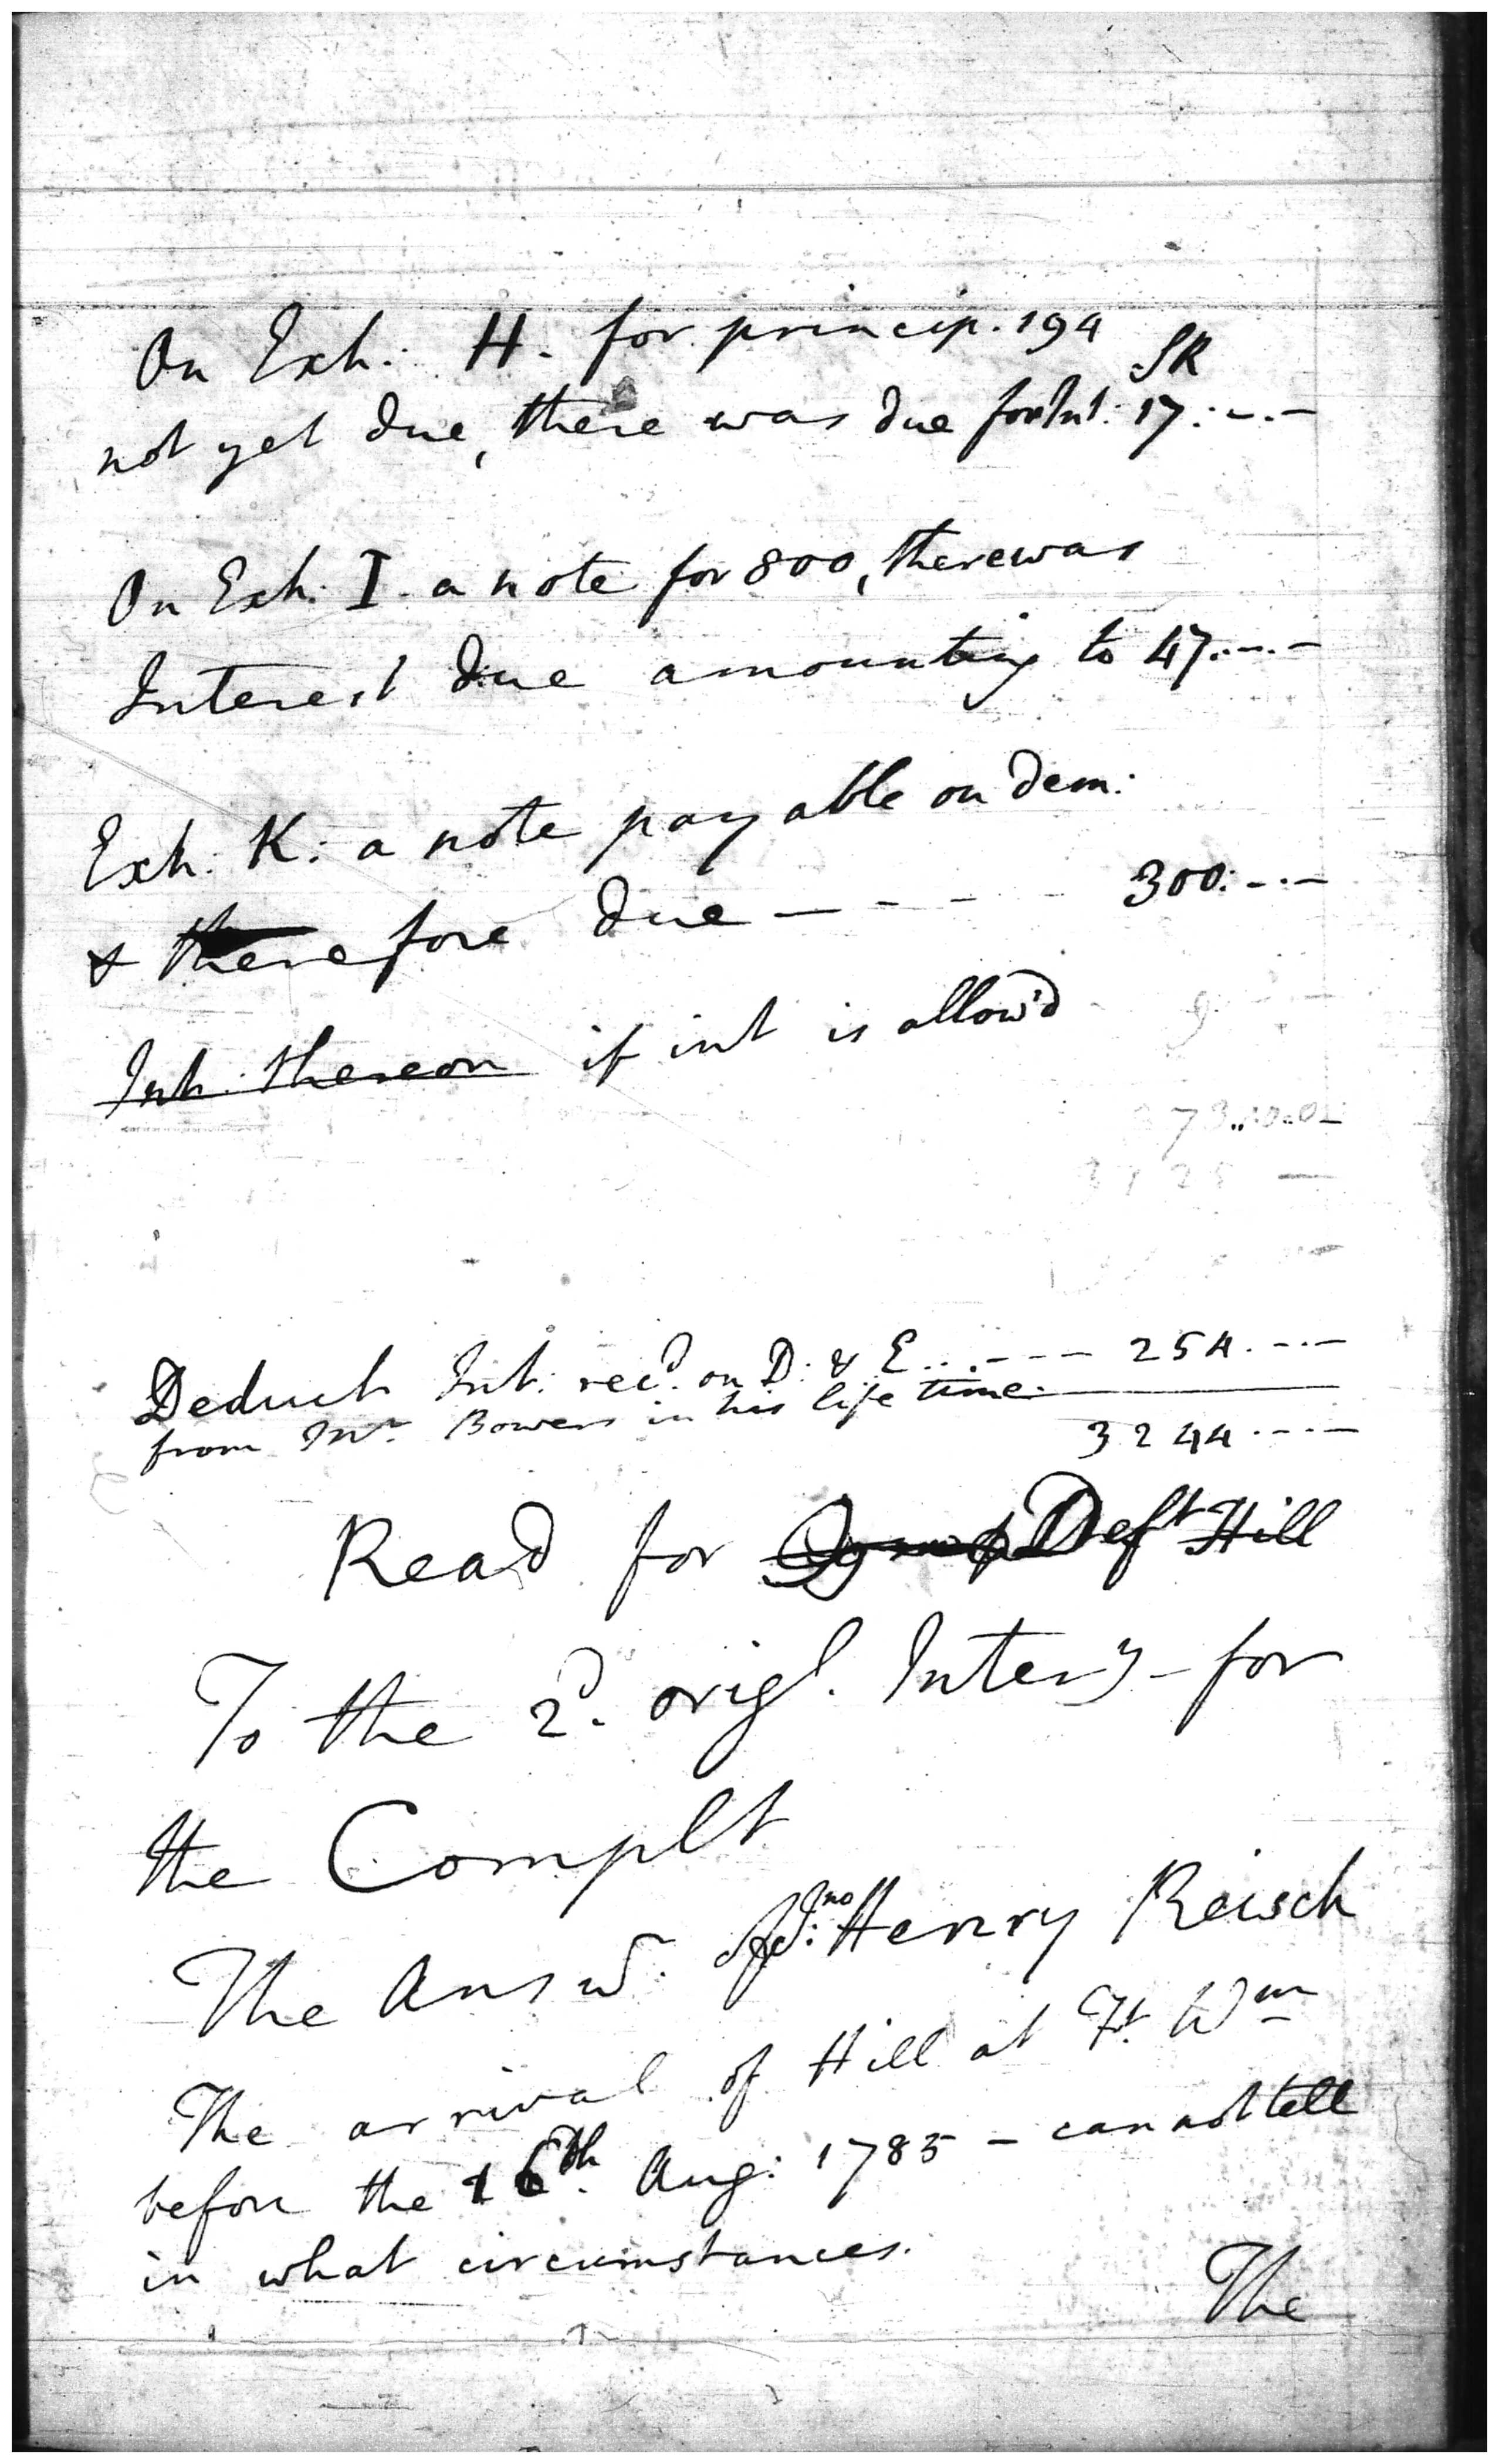 On Exh: H. for princip. 194
SR
not yet due, there was due for Int: 17.-.-
On Exh: I. a note for 800, there was
Interest due amounting to 47.-.-
Exh: K: a note payable on Dem:
& therefore due - - - - 300:-.-
Int: thereon if int is allow'd
Deduct Int: rec'd. on D: & E...--- 254.-.-
from Mr. Bowers in his life time.
3244.-.-
Read for Deft Hill
To the 2d. origl. Intery - for
the Complt
The Answr. of Jno: Henry Reisch
The arrival of Hill at Ft. Wm
before the 16th. Aug: 1785 - cannot tell
in what circumstances.
The